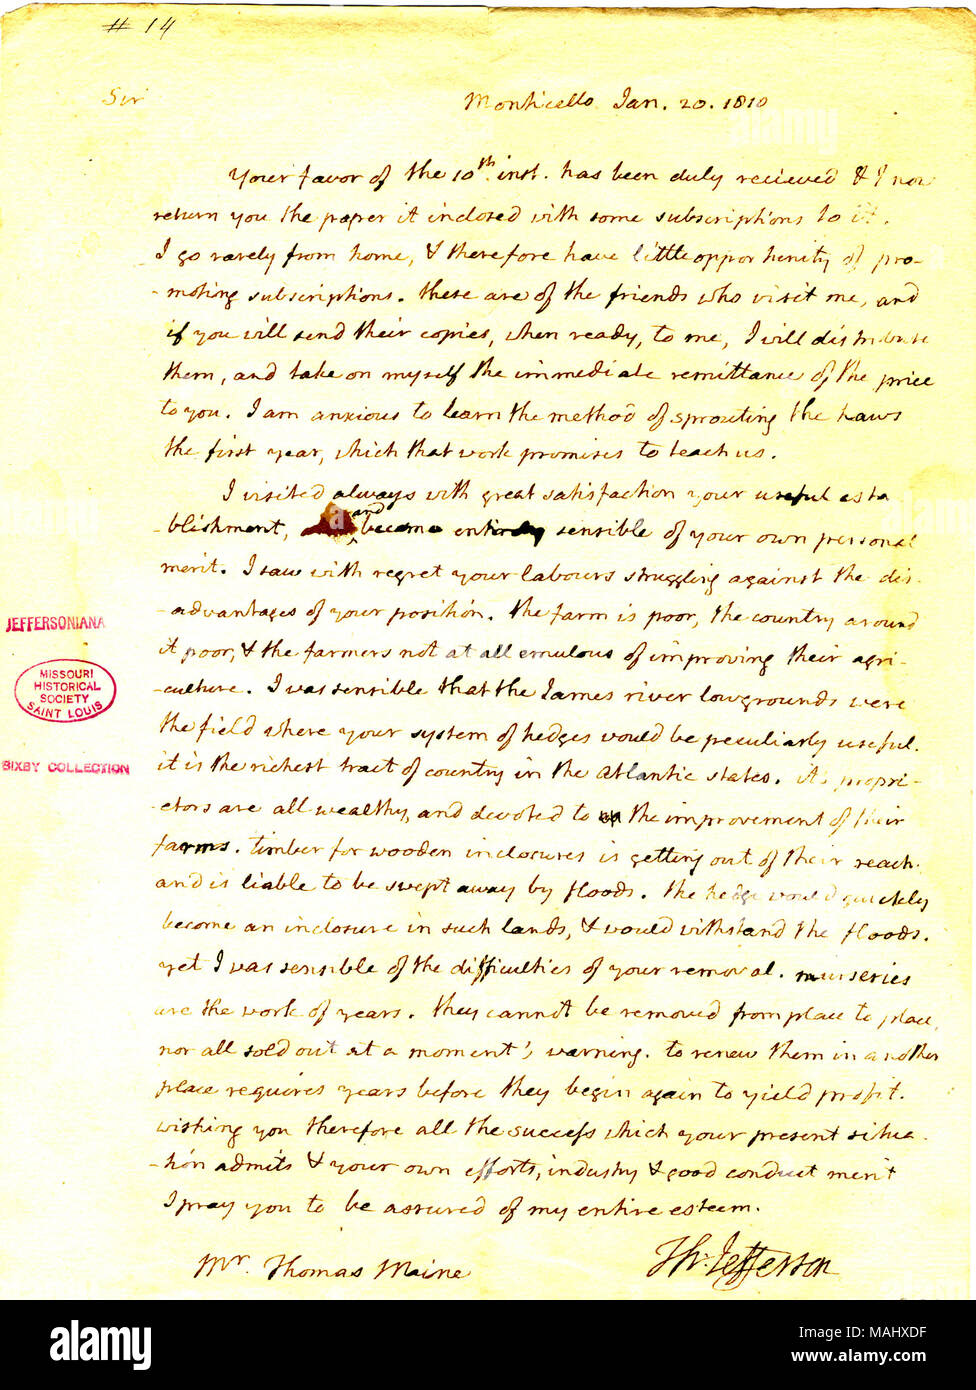 # 14
Sir
Monticello Jan. 20. 1810
Your favor of the 10th inst. has been duly recieved & I now
return you the paper it inclosed with some subscriptions to it.
I go rarely from home, & therefore have little opportunity of pro-
-moting subscriptions. these are of the friends who visit me, and
if you will send their copies, when ready, to me, I will distribute
them, and take on myself the immediate remittance of the price
to you. I am anxious to learn the method of sprouting the haws
the first year, which that work promises to teach us.
I visited always with great satisfaction your useful esta-
-blishment, and became entirely sensible of your own personal
merit. I saw with regret your labours struggling against the dis-
-advantages of your position. the farm is poor, the country around
it poor, & the farmers not at all emulous of improving their agri-
-culture. I was sensible that the James river lowgrounds were
the field where your system of hedges would be peculiarly useful.
it is the richest tract of country in the Atlantic states. it's propri-
-etors are all wealthy, and devoted to the improvement of their
farms. timber for wooden inclosures is getting out of their reach.
and is liable to be swept away by floods. the hedge would quickly
become an inclosure in such lands, & would withstand the floods.
yet I was sensible of the difficulties of your removal. nurseries
are the work of years. they cannot be removed from place to place,
nor all sold out at a moment's warning. to renew them in another
place requires years before they begin again to yield profit.
wishing you therefore all the success which your present situa-
-tion admits & your own efforts, industry & good conduct merit
I pray you to be assured of my entire esteem.
Th: Jefferson
Mr. Thomas Maine
JEFFERSONIANA
MISSOURI
HISTORICAL
SOCIETY
SAINT LOUIS
BIXBY COLLECTION
alamy
Image ID: MAHXDF
www.alamy.com